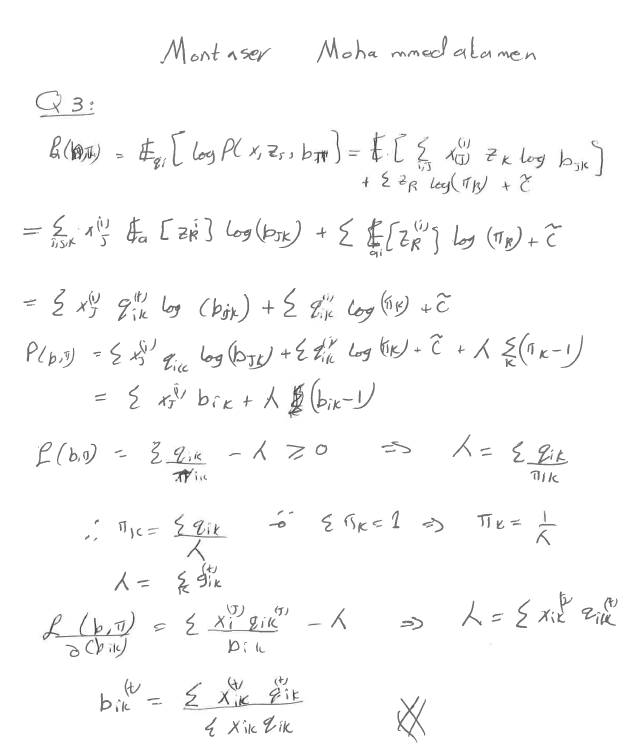 Montaser Mohammedalamen
Q 3:
L(b,π) = E_{q_i} [ log P( x, z_s, b_π ] = E [ Σ_{i,j} x_j^{(i)} z_k log b_{jk} ]
+ Σ z_k log(π_k) + c̃
= Σ_{j,s,k} x_j^{(i)} E_q [ z_k^i ] log(b_{jk}) + Σ E_{q_i} [ z_k^{(i)} ] log (π_k) + c̃
= Σ x_j^{(i)} q_{ik}^{(t)} log (b_{jk}) + Σ q_{ik}^{(i)} log (π_k) + c̃
P(b,π) = Σ x_j^{(i)} q_{ik} log(b_{jk}) + Σ q_{ik}^{i} log (π_k) + c̃ + λ Σ_k (π_k - 1)
= Σ x_j^{(i)} b_{ik} + λ (b_{ik} - 1)
L(b,π) = Σ q_{ik} / π_{ik} - λ ≥ 0 ⇒ λ = Σ q_{ik} / π_{ik}
∴ π_k = Σ q_{ik} / λ Σ π_k = 1 ⇒ π_k = 1 / λ
λ = Σ_k q_{ik}^{(t)}
L (b,π) / ∂(b_{ik}) = Σ x_i^{(j)} q_{ik}^{(j)} / b_{ik} - λ ⇒ λ = Σ x_{ik} q_{ik}^{(t)}
b_{ik}^{(t)} = Σ x_{ik}^{(t)} q_{ik}^{(t)} / Σ x_{ik} q_{ik}